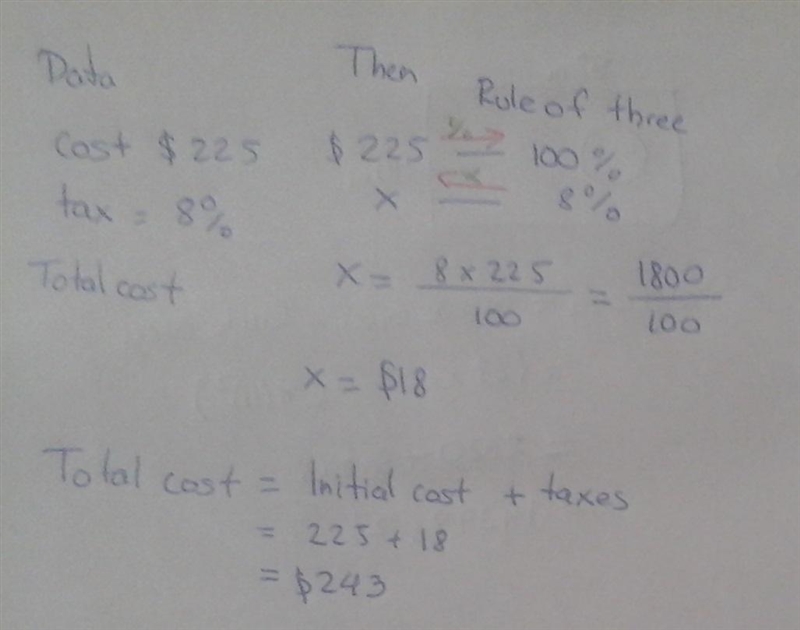 Data
Then
Rule of three
cost $ 225
$ 225 — 100 %
tax = 8%
x — 8%
Total cost
x = 8 x 225 / 100 = 1800 / 100
x = $18
Total cost = Initial cost + taxes
= 225 + 18
= $243